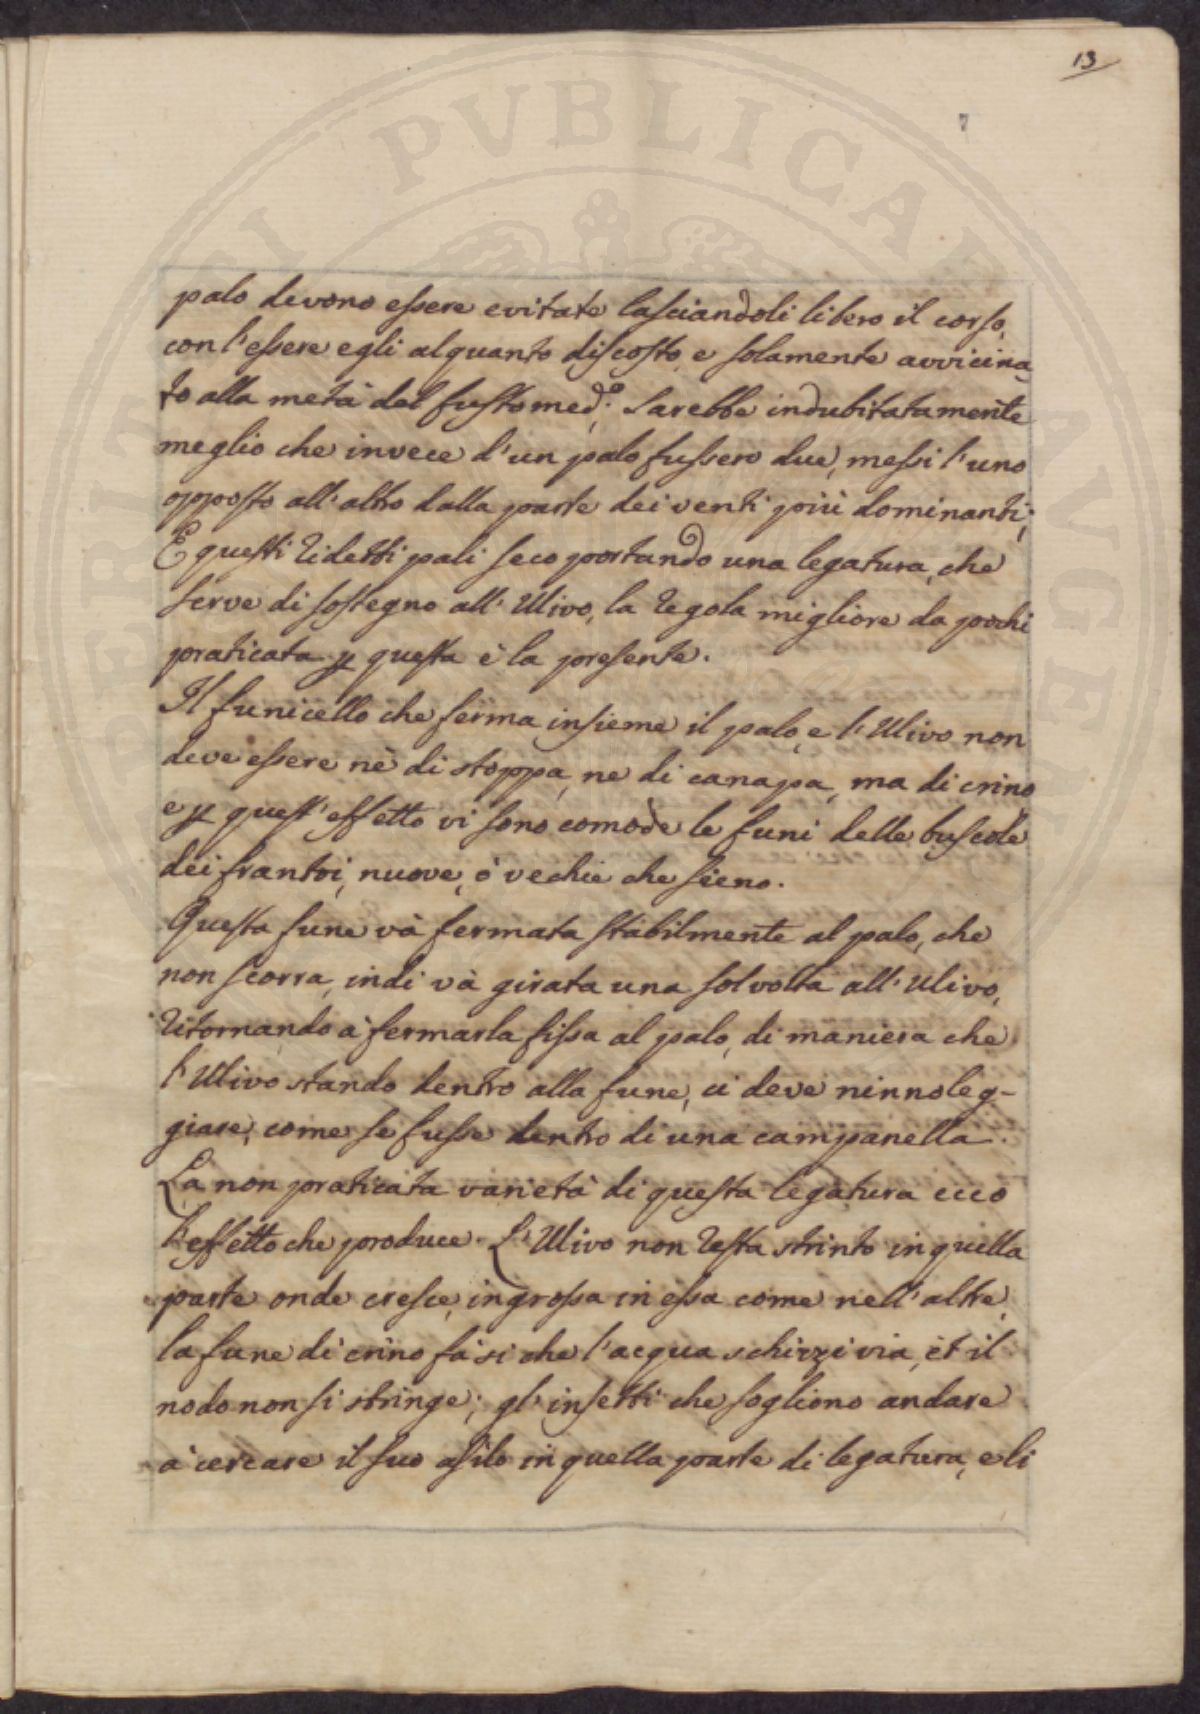 13
7
palo devono essere evitate lasciandoli libero il corso,
con l'essere egli alquanto discosto, e solamente avvicina,
to alla metà del fusto med.º Sarebbe indubitatamente
meglio che invece d'un palo fussero due, messi l'uno
opposto all'altro dalla parte dei venti più dominanti;
E questi ridetti pali seco portando una legatura, che
serve di sostegno all'Ulivo, la regola migliore da pochi
praticata p questa è la presente.
Il funicello che ferma insieme il palo, e l'Ulivo non
deve essere nè di stoppa, ne di canapa, ma di crino,
e p quest'effetto vi sono comode le funi delle buscole
dei frantoi, nuove, ò vechie che sieno.
Questa fune và fermata stabilmente al palo, che
non scorra, indi và girata una sol volta all'Ulivo,
ritornando à fermarla fissa al palo, di maniera che
l'Ulivo stando dentro alla fune, ci deve ninnoleg-
giare, come se fusse dentro di una campanella.
La non praticata varietà di questa legatura ecco
l'effetto che produce. L'Ulivo non resta strinto in quella
parte onde cresce, ingrossa in essa come nell'altre,
la fune di crino fà si che l'acqua schizzi via, et il
nodo non si stringe; gl'insetti che sogliono andare
à cercare il suo asilo in quella parte di legatura, e li
PERITATI PVBLICAE AVGENDAE